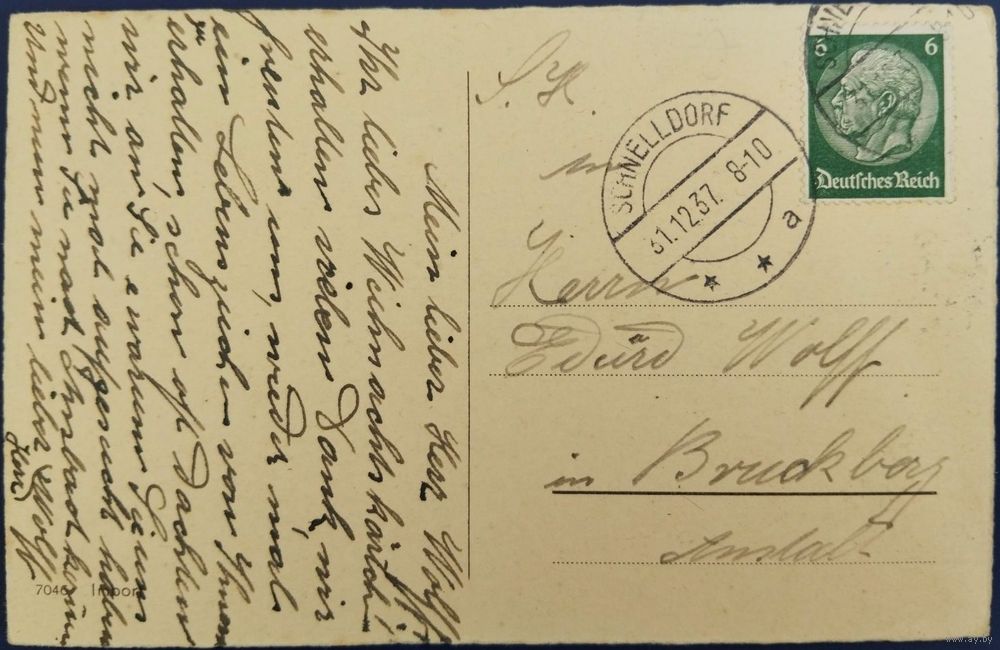 Mein lieber Herr Wolff,
Ihr liebes Weihnachtskärtch.
erhalten vielen Dank, wir
freuten uns, wieder mal
ein Lebenszeichen von Ihnen
zu erhalten, schon oft dachten
wir an Sie & warum Sie uns
nicht mal aufgesucht haben
wenn Sie nach Ansbach
Und nun mein lieber Wolff
SCHNELLDORF
31.12.37. 8-10
a
6 6
Deutsches Reich
S. H.
Herrn
Eduard Wolff
in Bruckberg
Anstalt
7046 Import
www.ay.by